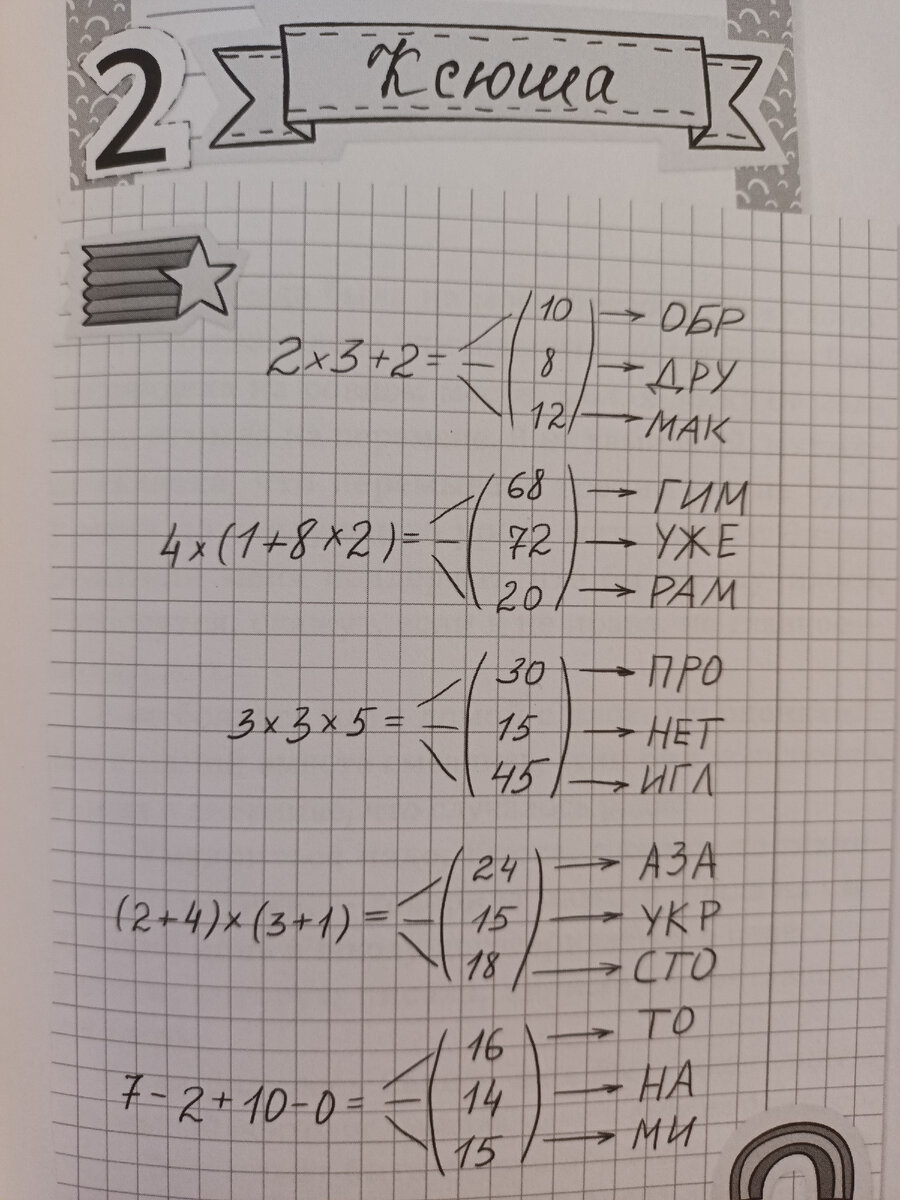 2 Ксюша
10 → ОБР
2×3+2= 8 → ДРУ
12 → МАК
68 → ГИМ
4×(1+8×2)= 72 → УЖЕ
20 → РАМ
30 → ПРО
3×3×5= 15 → НЕТ
45 → ИГЛ
24 → АЗА
(2+4)×(3+1)= 15 → УКР
18 → СТО
16 → ТО
7-2+10-0= 14 → НА
15 → МИ